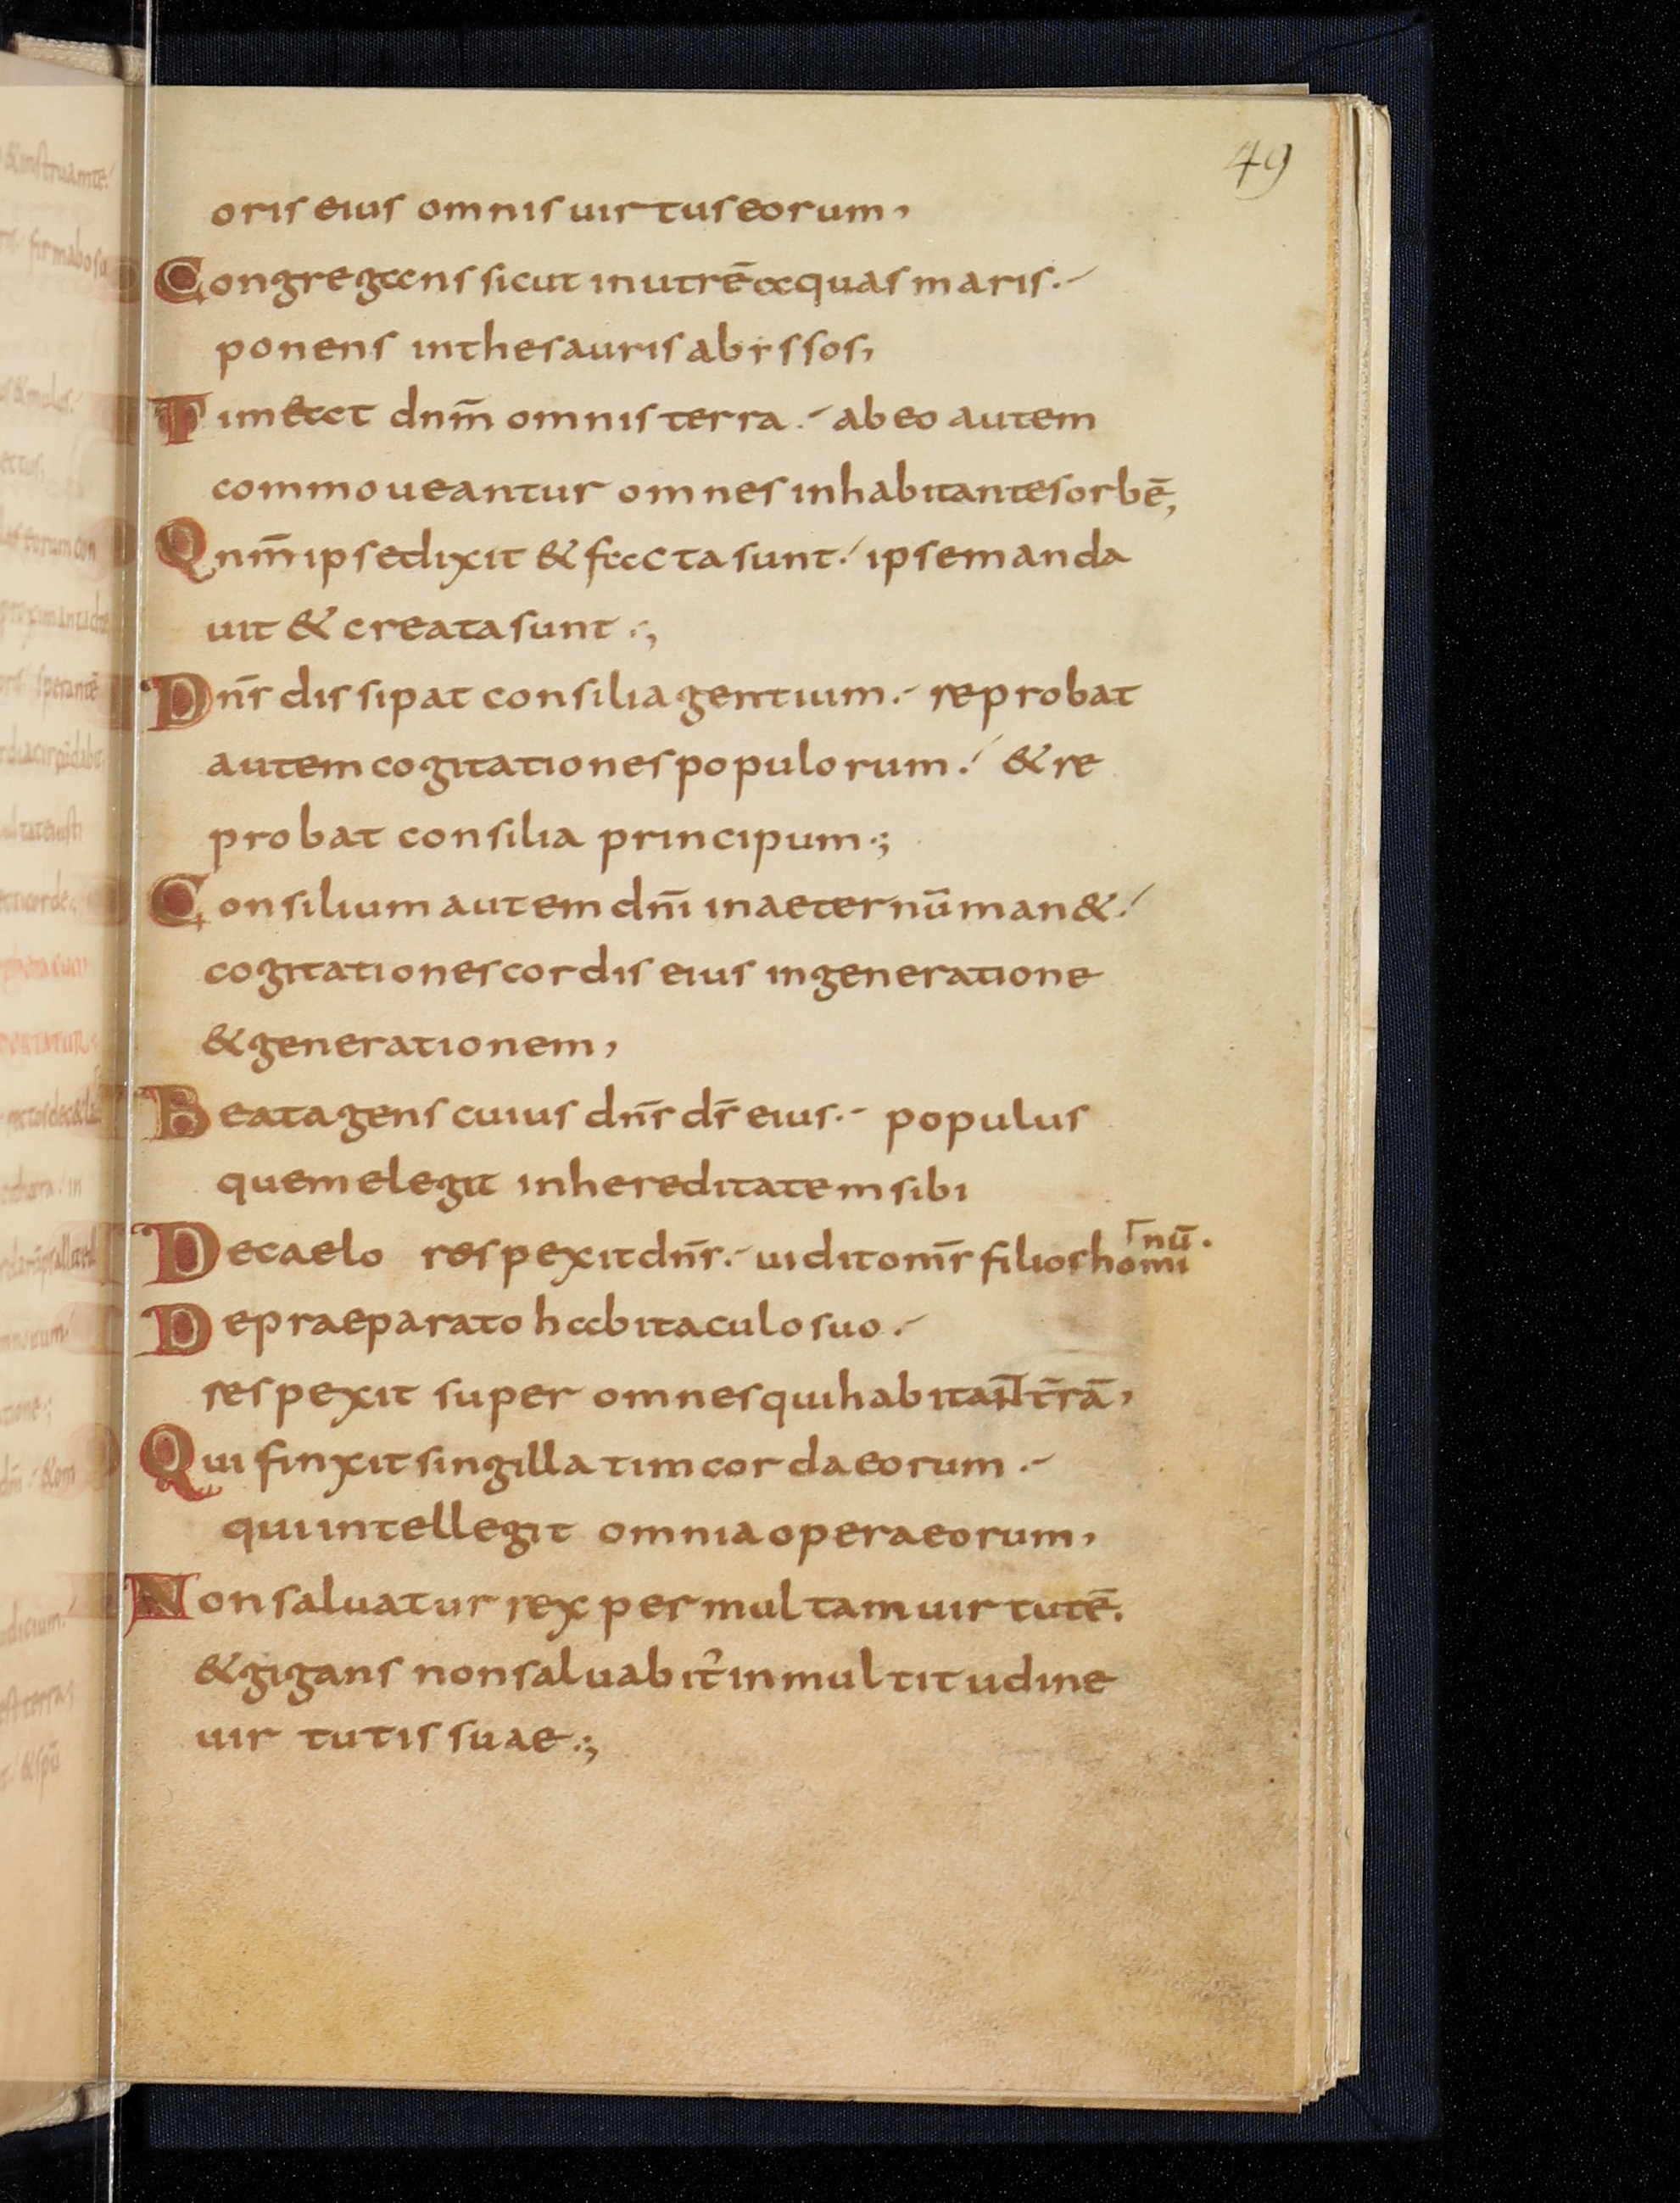 49
oris eius omnis uirtus eorum,
Congregans sicut in utrē aquas maris.-
ponens in thesauris abyssos,
Timeat dnm̄ omnis terra.- ab eo autem
commoueantur omnes inhabitantes orbē,
Qnm̄ ipse dixit & facta sunt./ ipse manda
uit & creata sunt.,
Dn̄s dissipat consilia gentium.- reprobat
autem cogitationes populorum./ & re
probat consilia principum.;
Consilium autem dn̄i in aeternū man&./
cogitationes cordis eius in generatione
& generationem,
Beata gens cuius dn̄s ds̄ eius.- populus
quem elegit in hereditatem sibi
De caelo respexit dn̄s.- uidit om̄s filios homi
nū.
De praeparato habitaculo suo.-
respexit super omnes qui habitant t̄rā,
Qui finxit singillatim corda eorum.-
qui intellegit omnia opera eorum,
Non saluatur rex per multam uirtutē.
& gigans non saluabit᷑ in multitudine
uirtutis suae.;